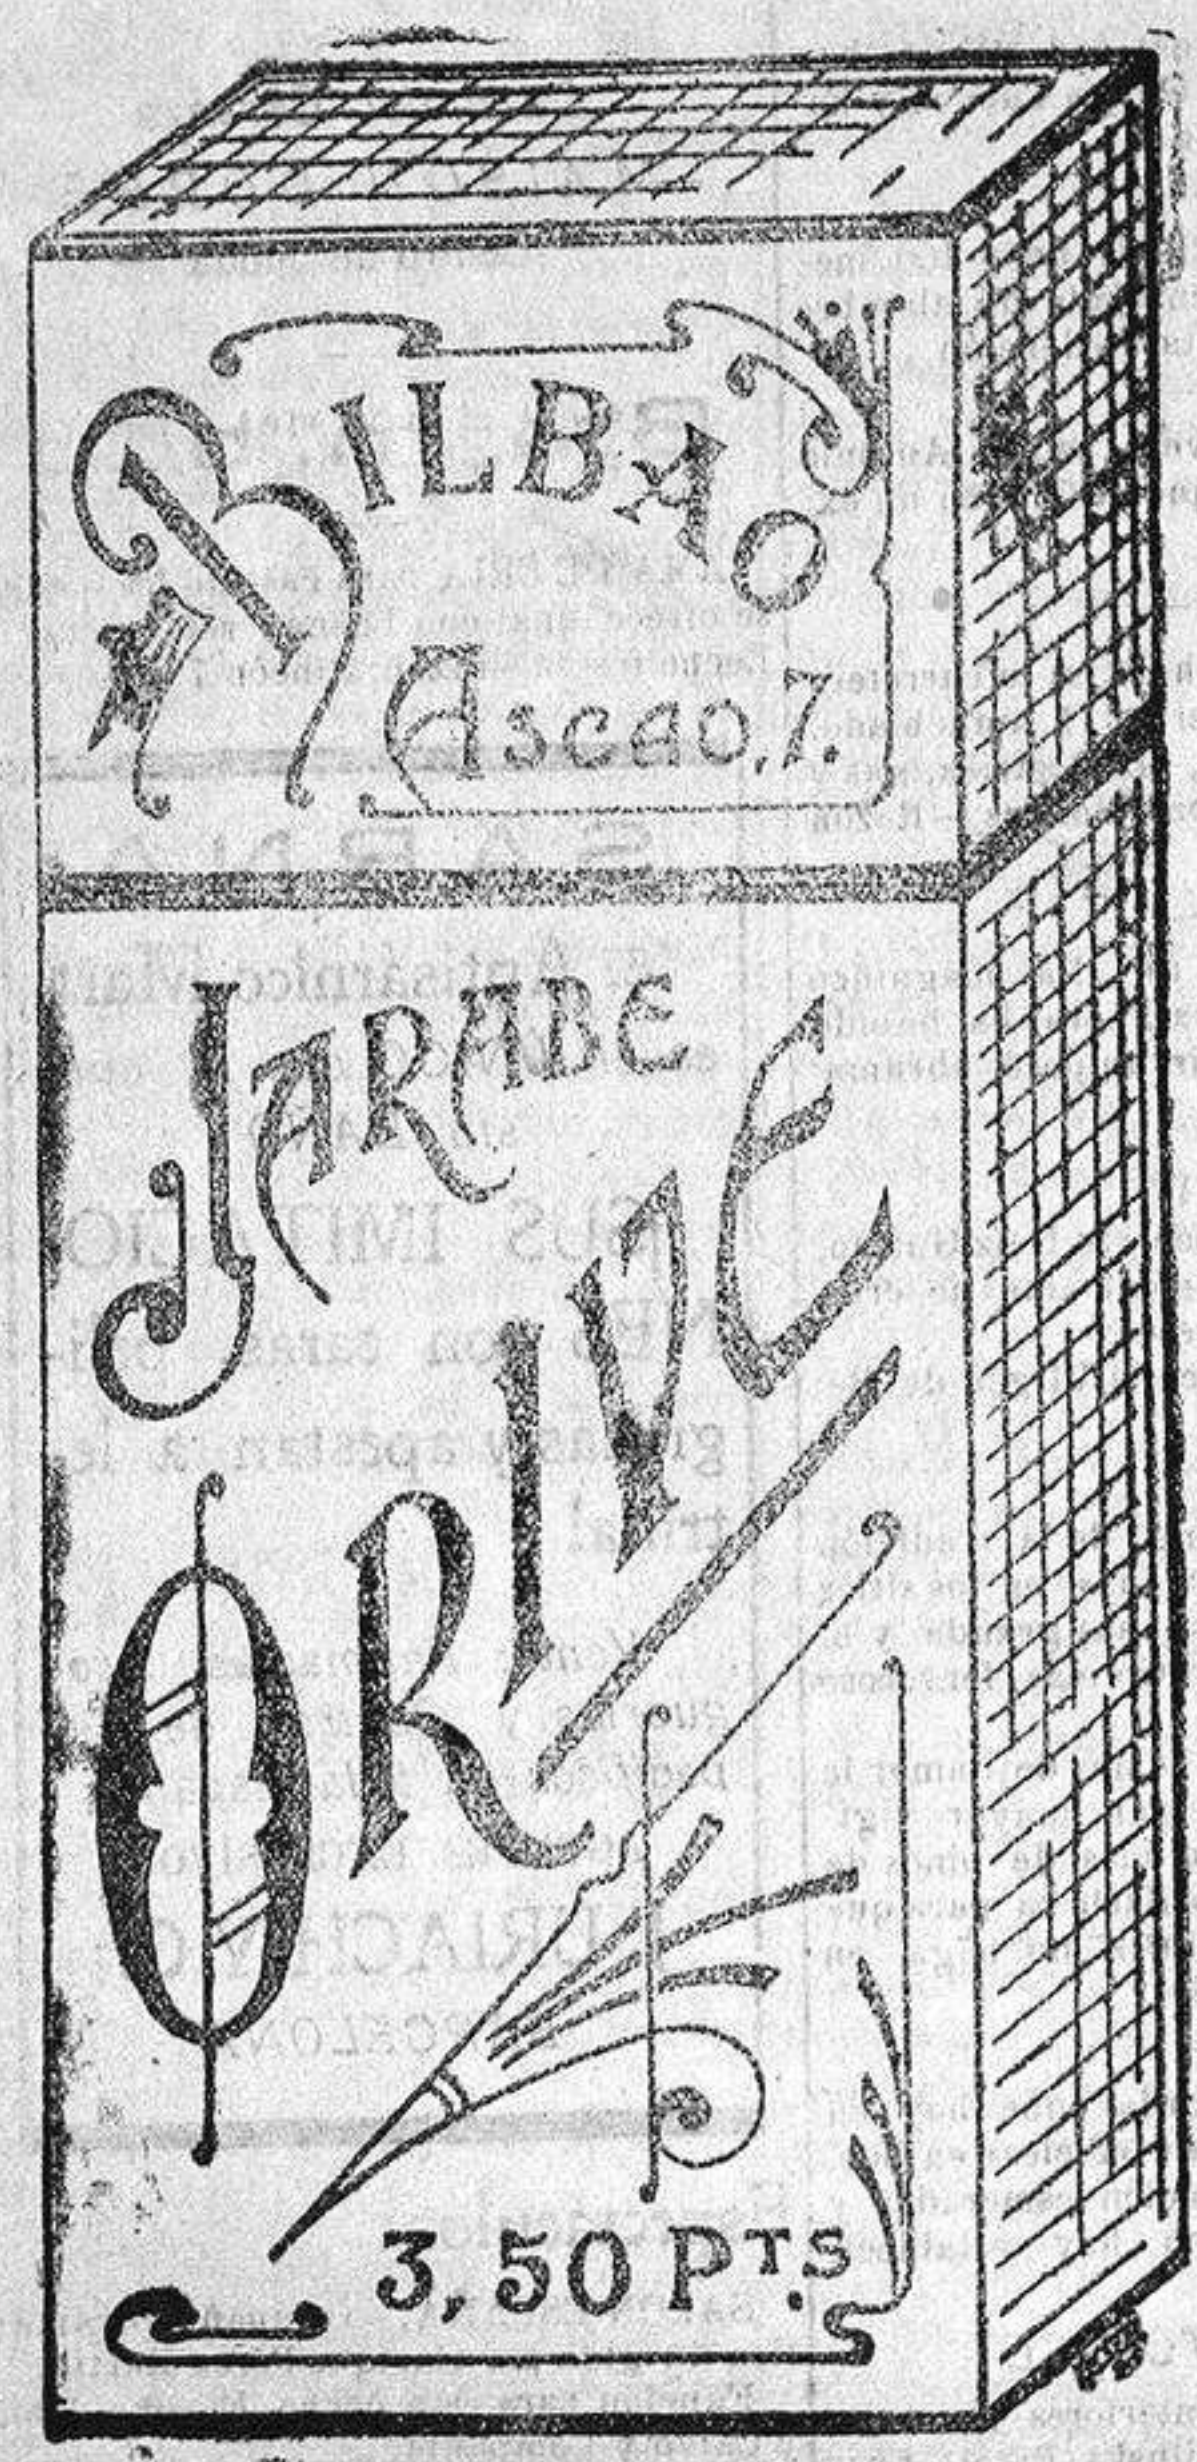 BILBAO
Ascao, 7.
JARABE
ORIVE
3,50 PTS.